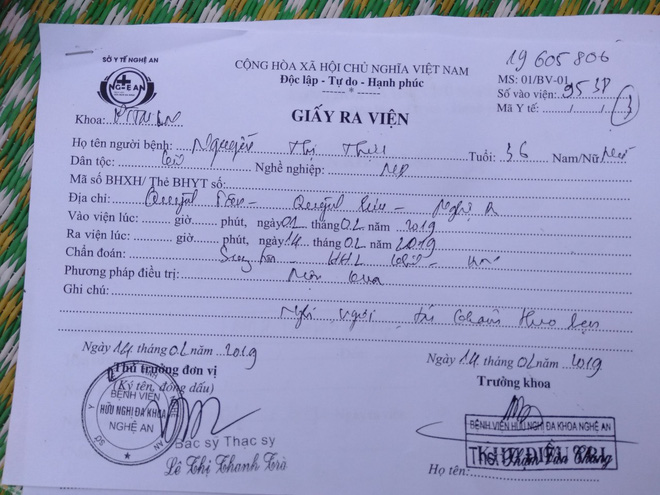 SỞ Y TẾ NGHỆ AN
NGHỆ AN
CỘNG HÒA XÃ HỘI CHỦ NGHĨA VIỆT NAM
Độc lập - Tự do - Hạnh phúc
19 605 806
MS: 01/BV-01
Số vào viện: 9538
Mã Y tế: ....../....../......
3
Khoa:
GIẤY RA VIỆN
Họ tên người bệnh: Nguyễn Thị Tuổi: 36 Nam/Nữ Nữ
Dân tộc: Nghề nghiệp:
Mã số BHXH/ Thẻ BHYT số:
Địa chỉ: Quỳnh - Quỳnh Lưu - Nghệ A
Vào viện lúc: ....... giờ ....... phút, ngày 01 tháng 02 năm 2019
Ra viện lúc: ....... giờ ....... phút, ngày 14 tháng 02 năm 2019
Chẩn đoán: Suy - HHL
Phương pháp điều trị: Nội khoa
Ghi chú:
Nghỉ ngơi, tái khám theo hẹn
Ngày 14 tháng 02 năm 2019
Ngày 14 tháng 02 năm 2019
Thủ trưởng đơn vị
(Ký tên, đóng dấu)
Trưởng khoa
BỆNH VIỆN
HỮU NGHỊ ĐA KHOA
NGHỆ AN
BỆNH VIỆN HỮU NGHỊ ĐA KHOA NGHỆ AN
Bác sỹ Thạc sỹ
Lê Thị Thanh Trà
Họ tên: